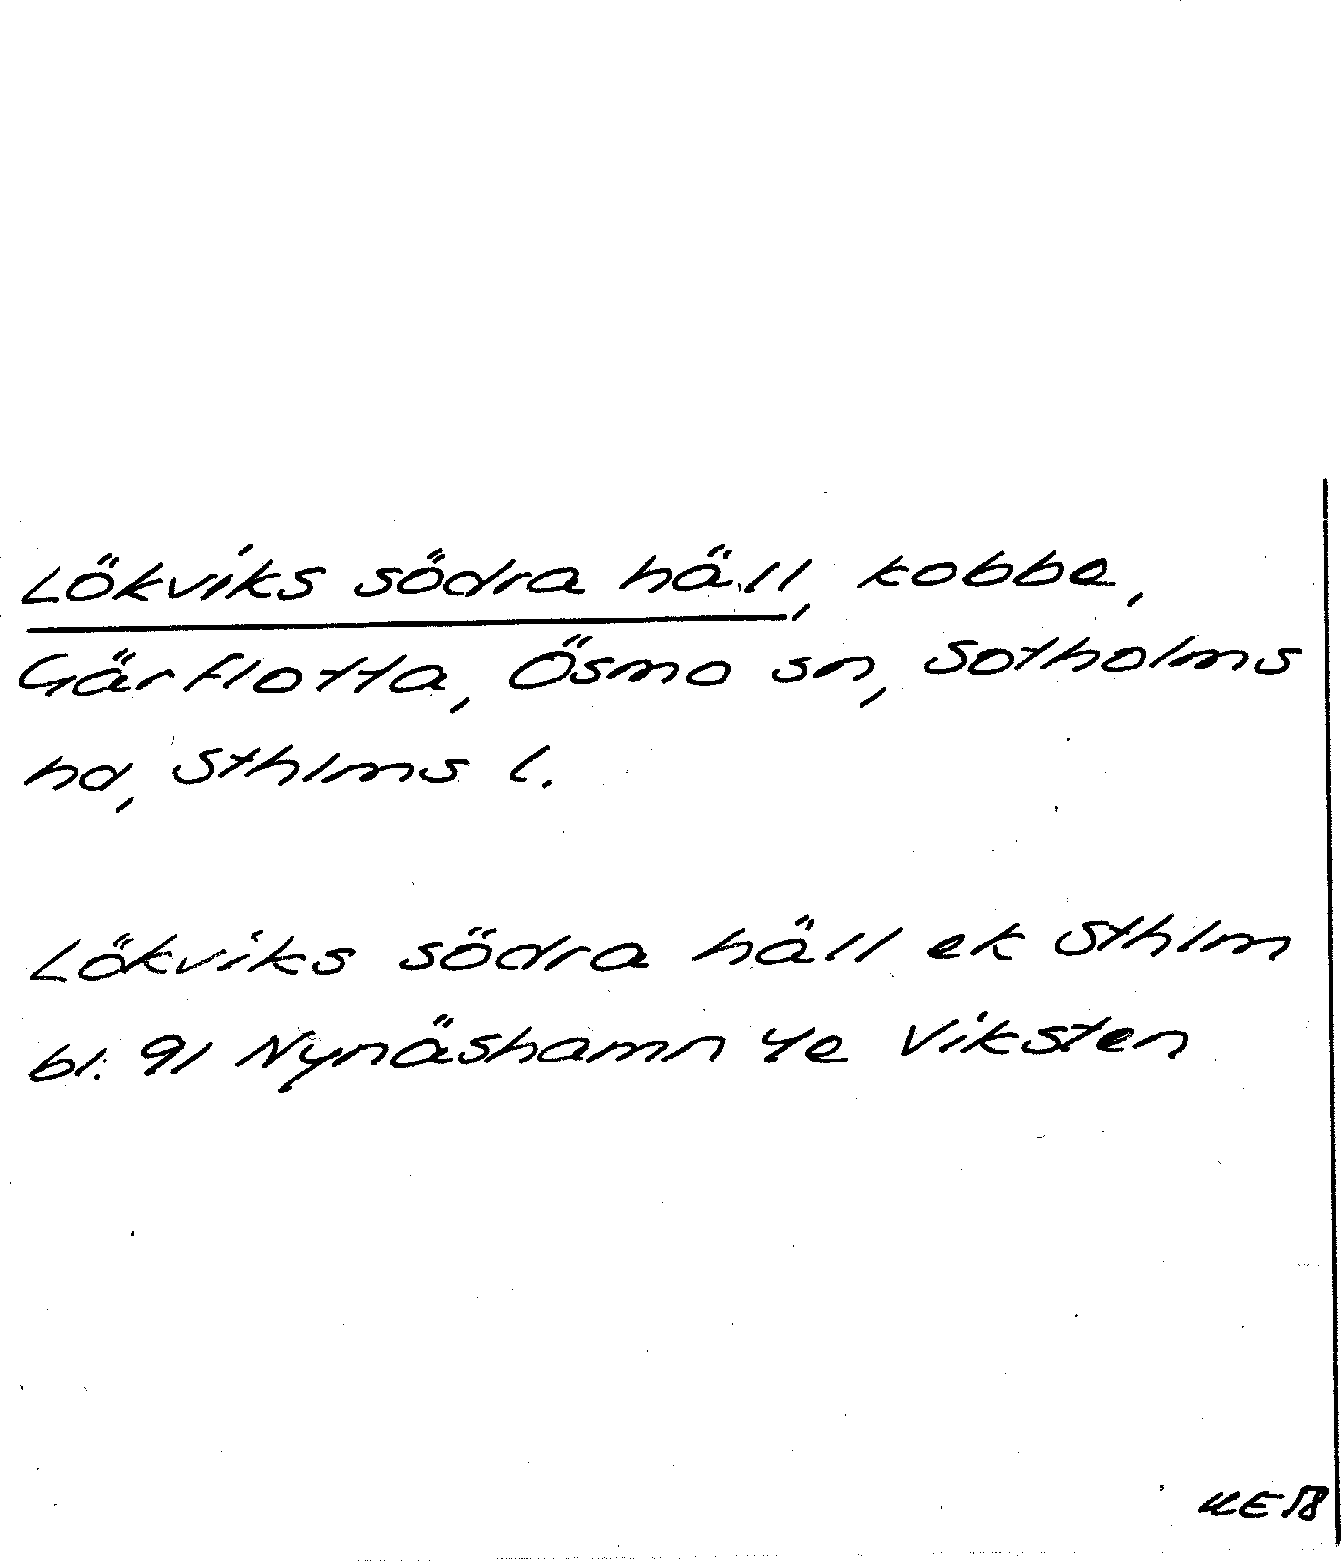 Lökviks södra häll, kobbe,
Gärflotta, Ösmo sn, Sotholms
hd, Sthlms l.
Lökviks södra häll ek Sthlm
bl. 91 Nynäshamn 4e Viksten